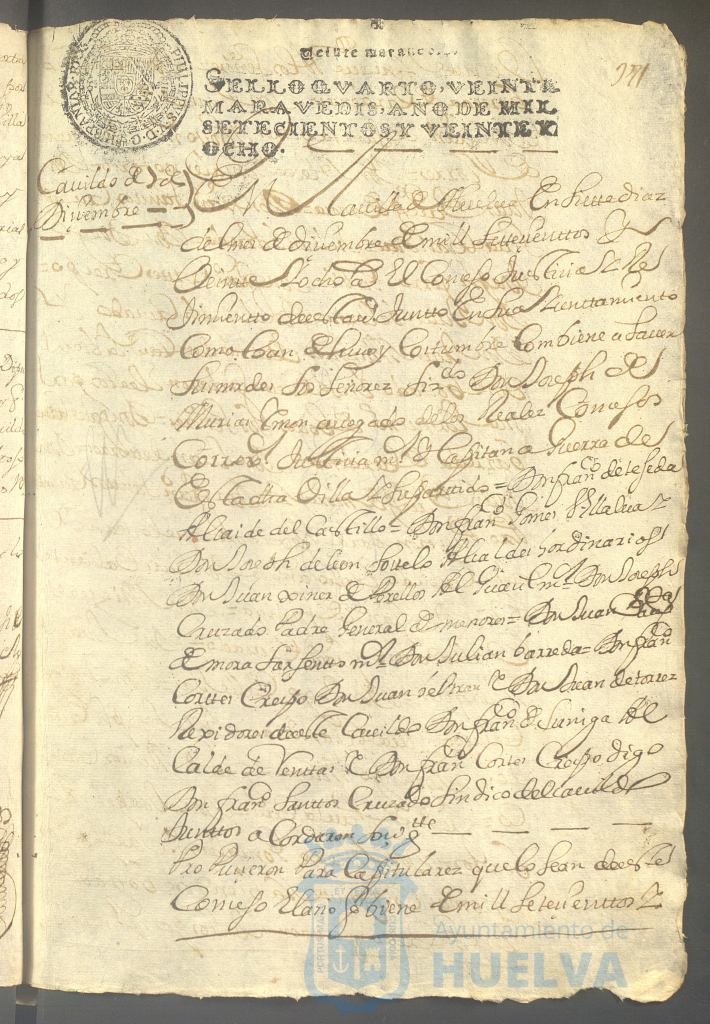 Veinte maraved
SELLO QVARTO, VEINTE
MARAVEDIS, AÑO DE MIL
SETECIENTOS Y VEINTE Y
OCHO.
Cavildo de
Diziembre
Villa de Huelva En siette dias
del mes de diziembre de mill settezenttos y
Veinte y ocho El Conzejo Justicia y Re
Juntto En su Ayunttamiento
Como lo an de husso y Costumbre Combiene a saver
los señores Don Joseph de
Murias abogado de los Reales Consejos
Correx Justicia mr Cappitan a Guerra de
Esta dha Villa y su partido = Don Fran^co de texeda
Alcaide del Castillo = Don Fran^co Gomes Villalva y
Don Joseph de leon Sottelo Alcaldes hordinarios
Don Juan de Al Guacil mr Don Joseph
Cruzado Padre General de menores = Don Juan
de mora Sarjentto mr Don Julian barreda = Don Fran^co
Corttes Crespo Don Juan Beltran Don Juan de torres
Rexidores deeste Cavildo Don Fran^co de Suniga Al
Calde de Don Fran^co Cortes Crespo digo
Don Fran^co Santtos Cruzado Sindico del Cavildo
Junttos acordaron
Propusieron Para Capitulares que lo sean deeste
Consejo El año q biene de mill settezenttos y
Ayuntamiento de
HUELVA